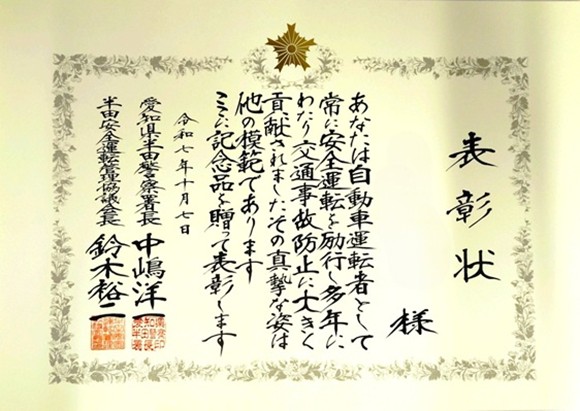 表彰状
様
あなたは自動車運転者として
常に安全運転を励行し多年に
わたり交通事故防止に大きく
貢献されましたその真摯な姿は
他の模範であります
ここに記念品を贈って表彰します
令和七年十月七日
愛知県半田警察署長 中嶋洋一
半田安全運転管理協議会長 鈴木裕二